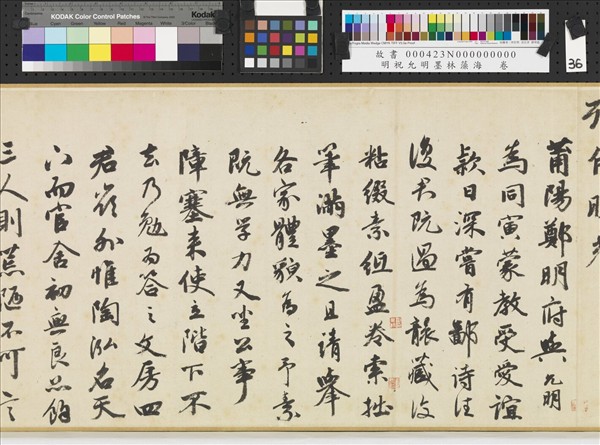 KODAK Color Control Patches
Kodak
故書 000423N000000000
明祝允明墨林藻海 卷
36
莆陽鄭明府與允明
為同寅蒙教受愛誼
款日深嘗有鄙詩法
復君既過為賑藏復
粘綴素組盈卷索拙
筆滿墨之且請舉
各家體貌為之予素
既無學力又坐公事
障塞來使立階下不
去乃勉而答之文房四
君案外惟陶泓名天
下而官舍初無良品餘
三人則荒陋不可言